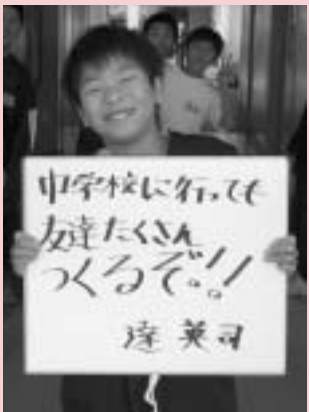 中学校に行っても
友達たくさん
つくるぞ!!
達 英司